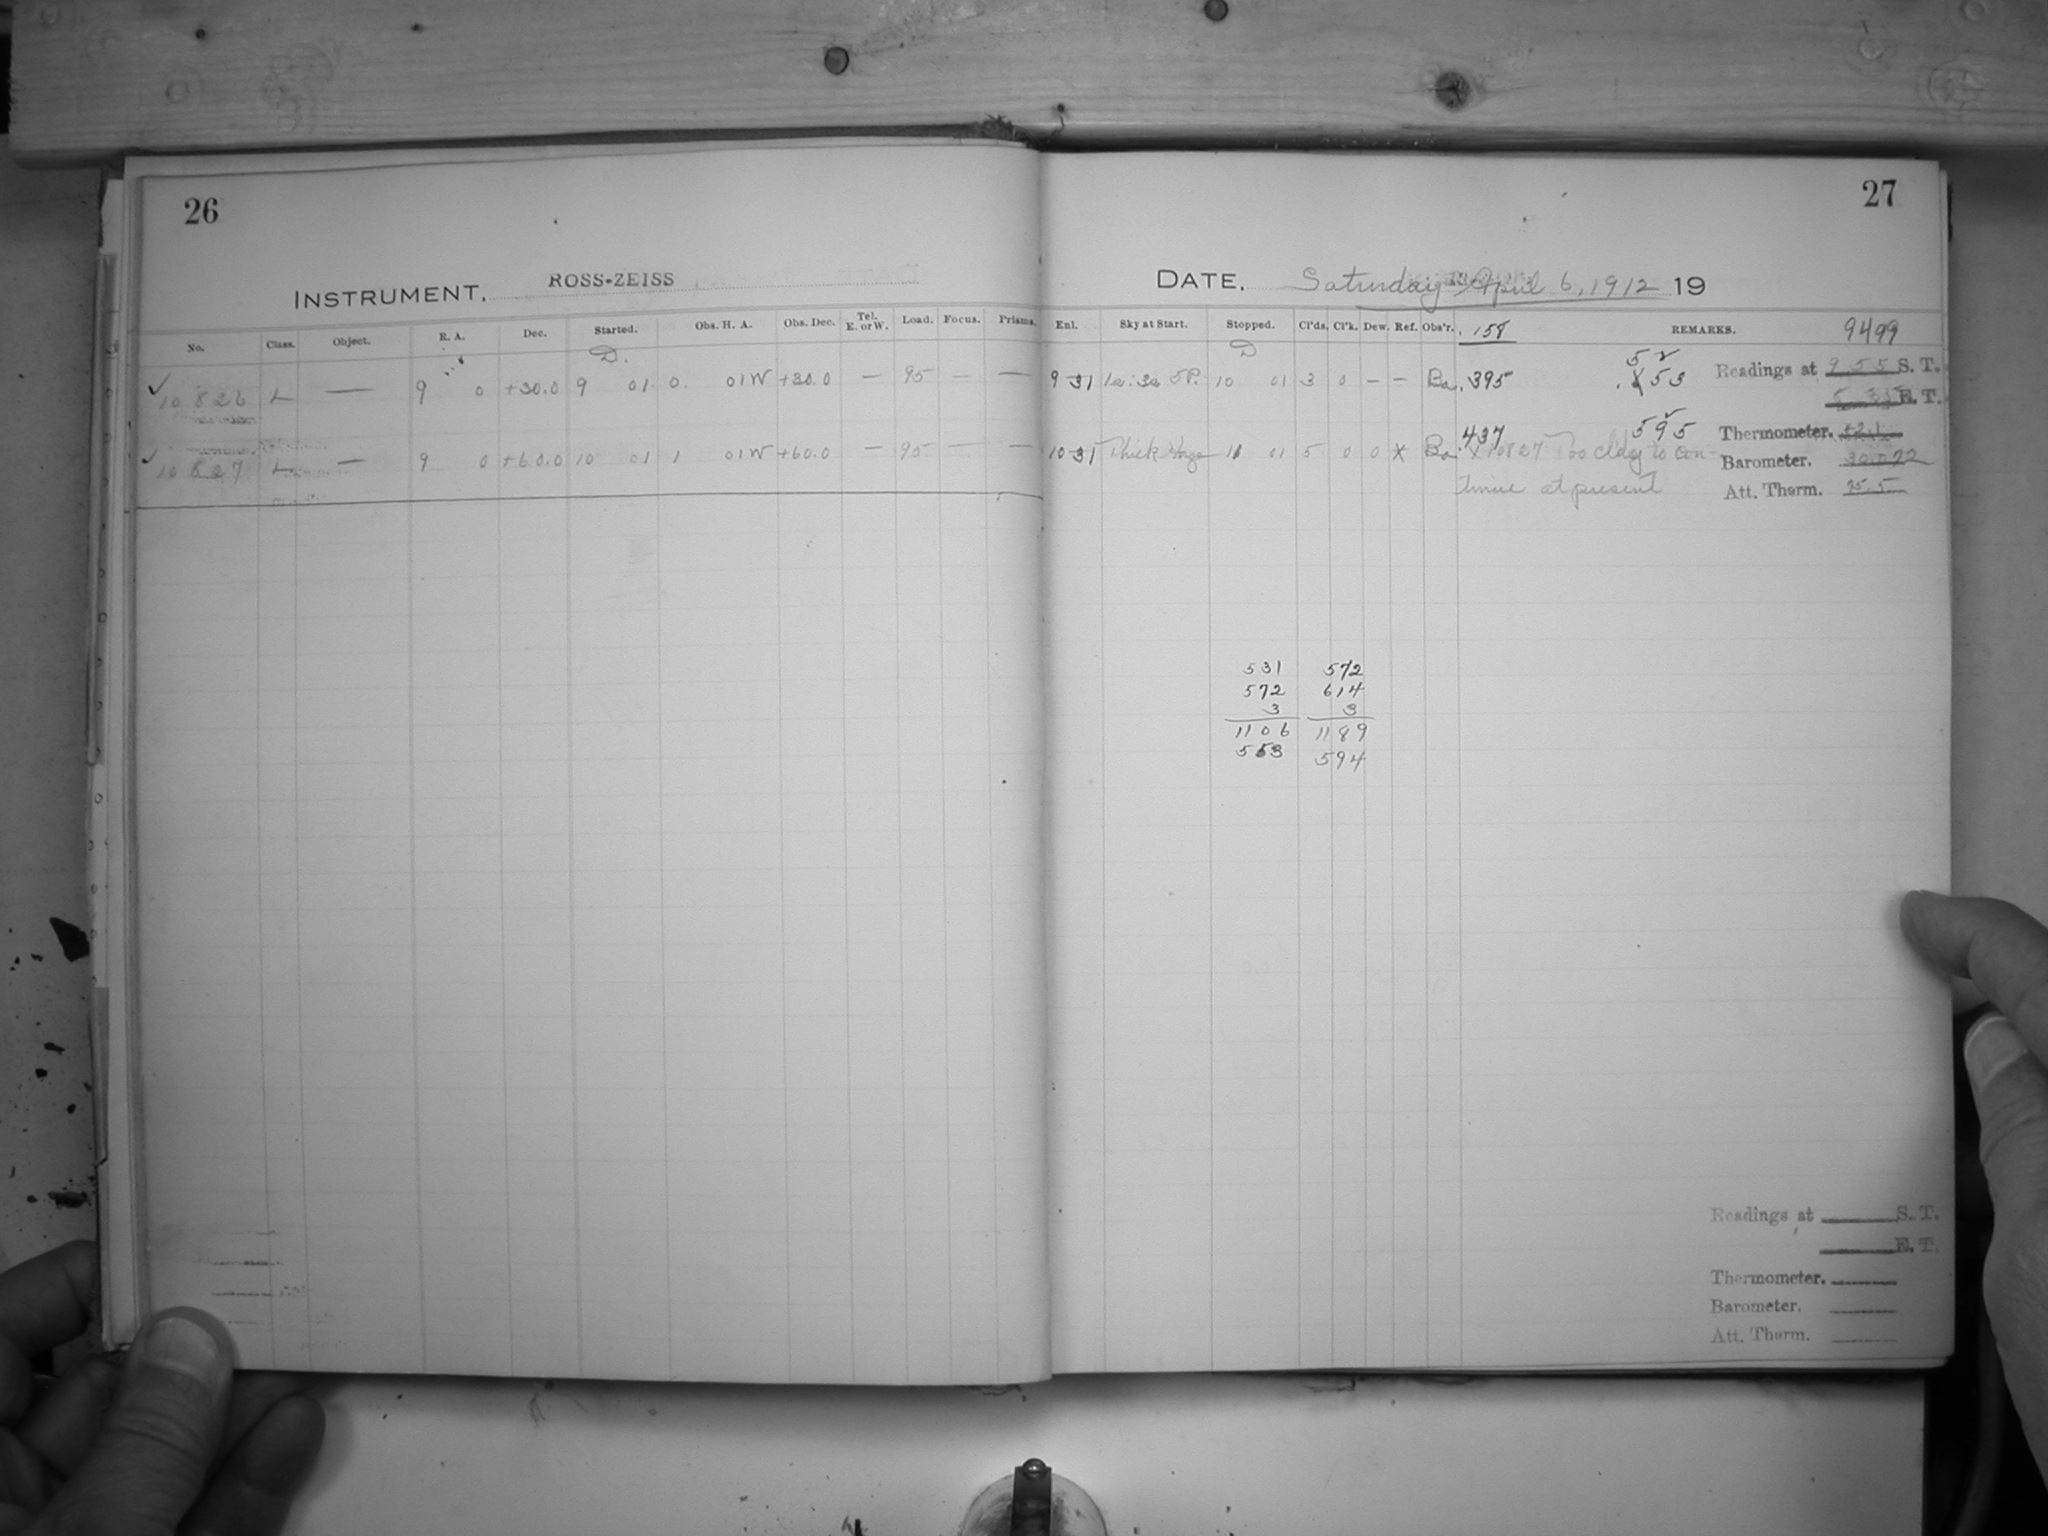 26
INSTRUMENT, ROSS-ZEISS
No. Class. Object. R. A. Dec. Started. Obs. H. A. Obs. Dec. Tel. E. or W. Load. Focus. Prisms.
D.
✓ 10 826 L — 9 0 +30.0 9 01 0 01 W +30.0 — 95 — —
✓ 10 827 L — 9 0 +60.0 10 01 1 01 W +60.0 — 95 — —
27
DATE, Saturday April 6, 1912 19
Enl. Sky at Start. Stopped. Cl'ds. Cl'k. Dew. Ref. Obs'r. .158 REMARKS. 9499
D
9 31 5P. 10 01 3 0 — — Ba .395 .553 Readings at 9 55 S. T.
E. T.
.437 595 Thermometer.
10 31 Thick Haze 11 01 5 0 0 X Ba. X 10827 Too cldy to con- Barometer. 30.072
tinue at present Att. Therm.
531 572
572 614
3 3
1106 1189
553 594
Readings at S. T.
E. T.
Thermometer.
Barometer.
Att. Therm.